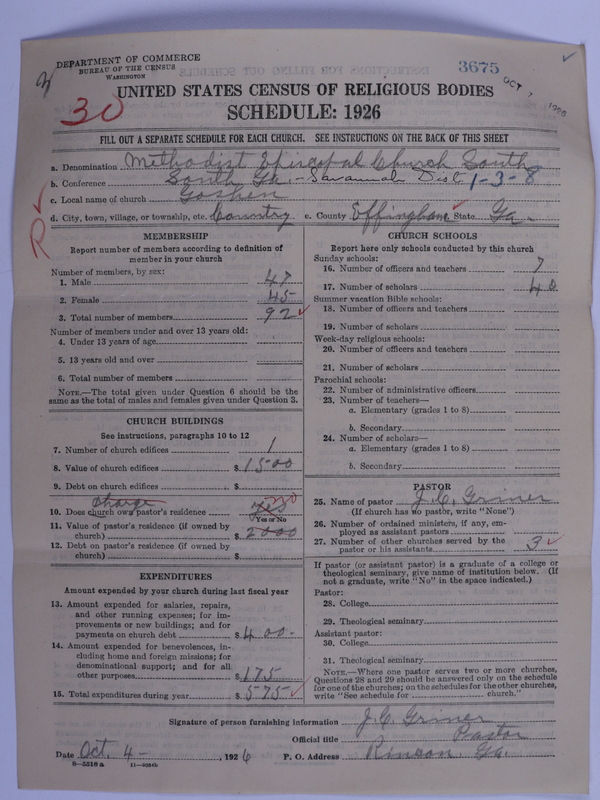 DEPARTMENT OF COMMERCE
BUREAU OF THE CENSUS
WASHINGTON
3675
OCT 7 1926
30
UNITED STATES CENSUS OF RELIGIOUS BODIES
SCHEDULE: 1926
FILL OUT A SEPARATE SCHEDULE FOR EACH CHURCH. SEE INSTRUCTIONS ON THE BACK OF THIS SHEET
a. Denomination Methodist Episcopal Church South
b. Conference South Ga. - Savannah Dist 1-3-8
c. Local name of church Goshen
d. City, town, village, or township, etc. Country e. County Effingham State Ga.
R
MEMBERSHIP
Report number of members according to definition of
member in your church
Number of members, by sex:
1. Male 47
2. Female 45
3. Total number of members 92
Number of members under and over 13 years old:
4. Under 13 years of age
5. 13 years old and over
6. Total number of members
NOTE.—The total given under Question 6 should be the
same as the total of males and females given under Question 3.
CHURCH BUILDINGS
See instructions, paragraphs 10 to 12
7. Number of church edifices 1
8. Value of church edifices $ 1500
9. Debt on church edifices $
charge
10. Does church own pastor's residence yes no
Yes or No
11. Value of pastor's residence (if owned by
church) $ 2000
12. Debt on pastor's residence (if owned by
church) $
EXPENDITURES
Amount expended by your church during last fiscal year
13. Amount expended for salaries, repairs,
and other running expenses; for im-
provements or new buildings; and for
payments on church debt $ 400-
14. Amount expended for benevolences, in-
cluding home and foreign missions; for
denominational support; and for all
other purposes $ 175
15. Total expenditures during year $ 575
CHURCH SCHOOLS
Report here only schools conducted by this church
Sunday schools:
16. Number of officers and teachers 7
17. Number of scholars 40
Summer vacation Bible schools:
18. Number of officers and teachers
19. Number of scholars
Week-day religious schools:
20. Number of officers and teachers
21. Number of scholars
Parochial schools:
22. Number of administrative officers
23. Number of teachers—
a. Elementary (grades 1 to 8)
b. Secondary
24. Number of scholars—
a. Elementary (grades 1 to 8)
b. Secondary
PASTOR
25. Name of pastor J. C. Griner
(If church has no pastor, write "None")
26. Number of ordained ministers, if any, em-
ployed as assistant pastors
27. Number of other churches served by the
pastor or his assistants 3
If pastor (or assistant pastor) is a graduate of a college or
theological seminary, give name of institution below. (If
not a graduate, write "No" in the space indicated.)
Pastor:
28. College
29. Theological seminary
Assistant pastor:
30. College
31. Theological seminary
NOTE.—Where one pastor serves two or more churches,
Questions 28 and 29 should be answered only on the schedule
for one of the churches; on the schedules for the other churches,
write "See schedule for church."
Signature of person furnishing information J. C. Griner
Official title Pastor
Date Oct. 4-, 1926 P. O. Address Rincon, Ga.